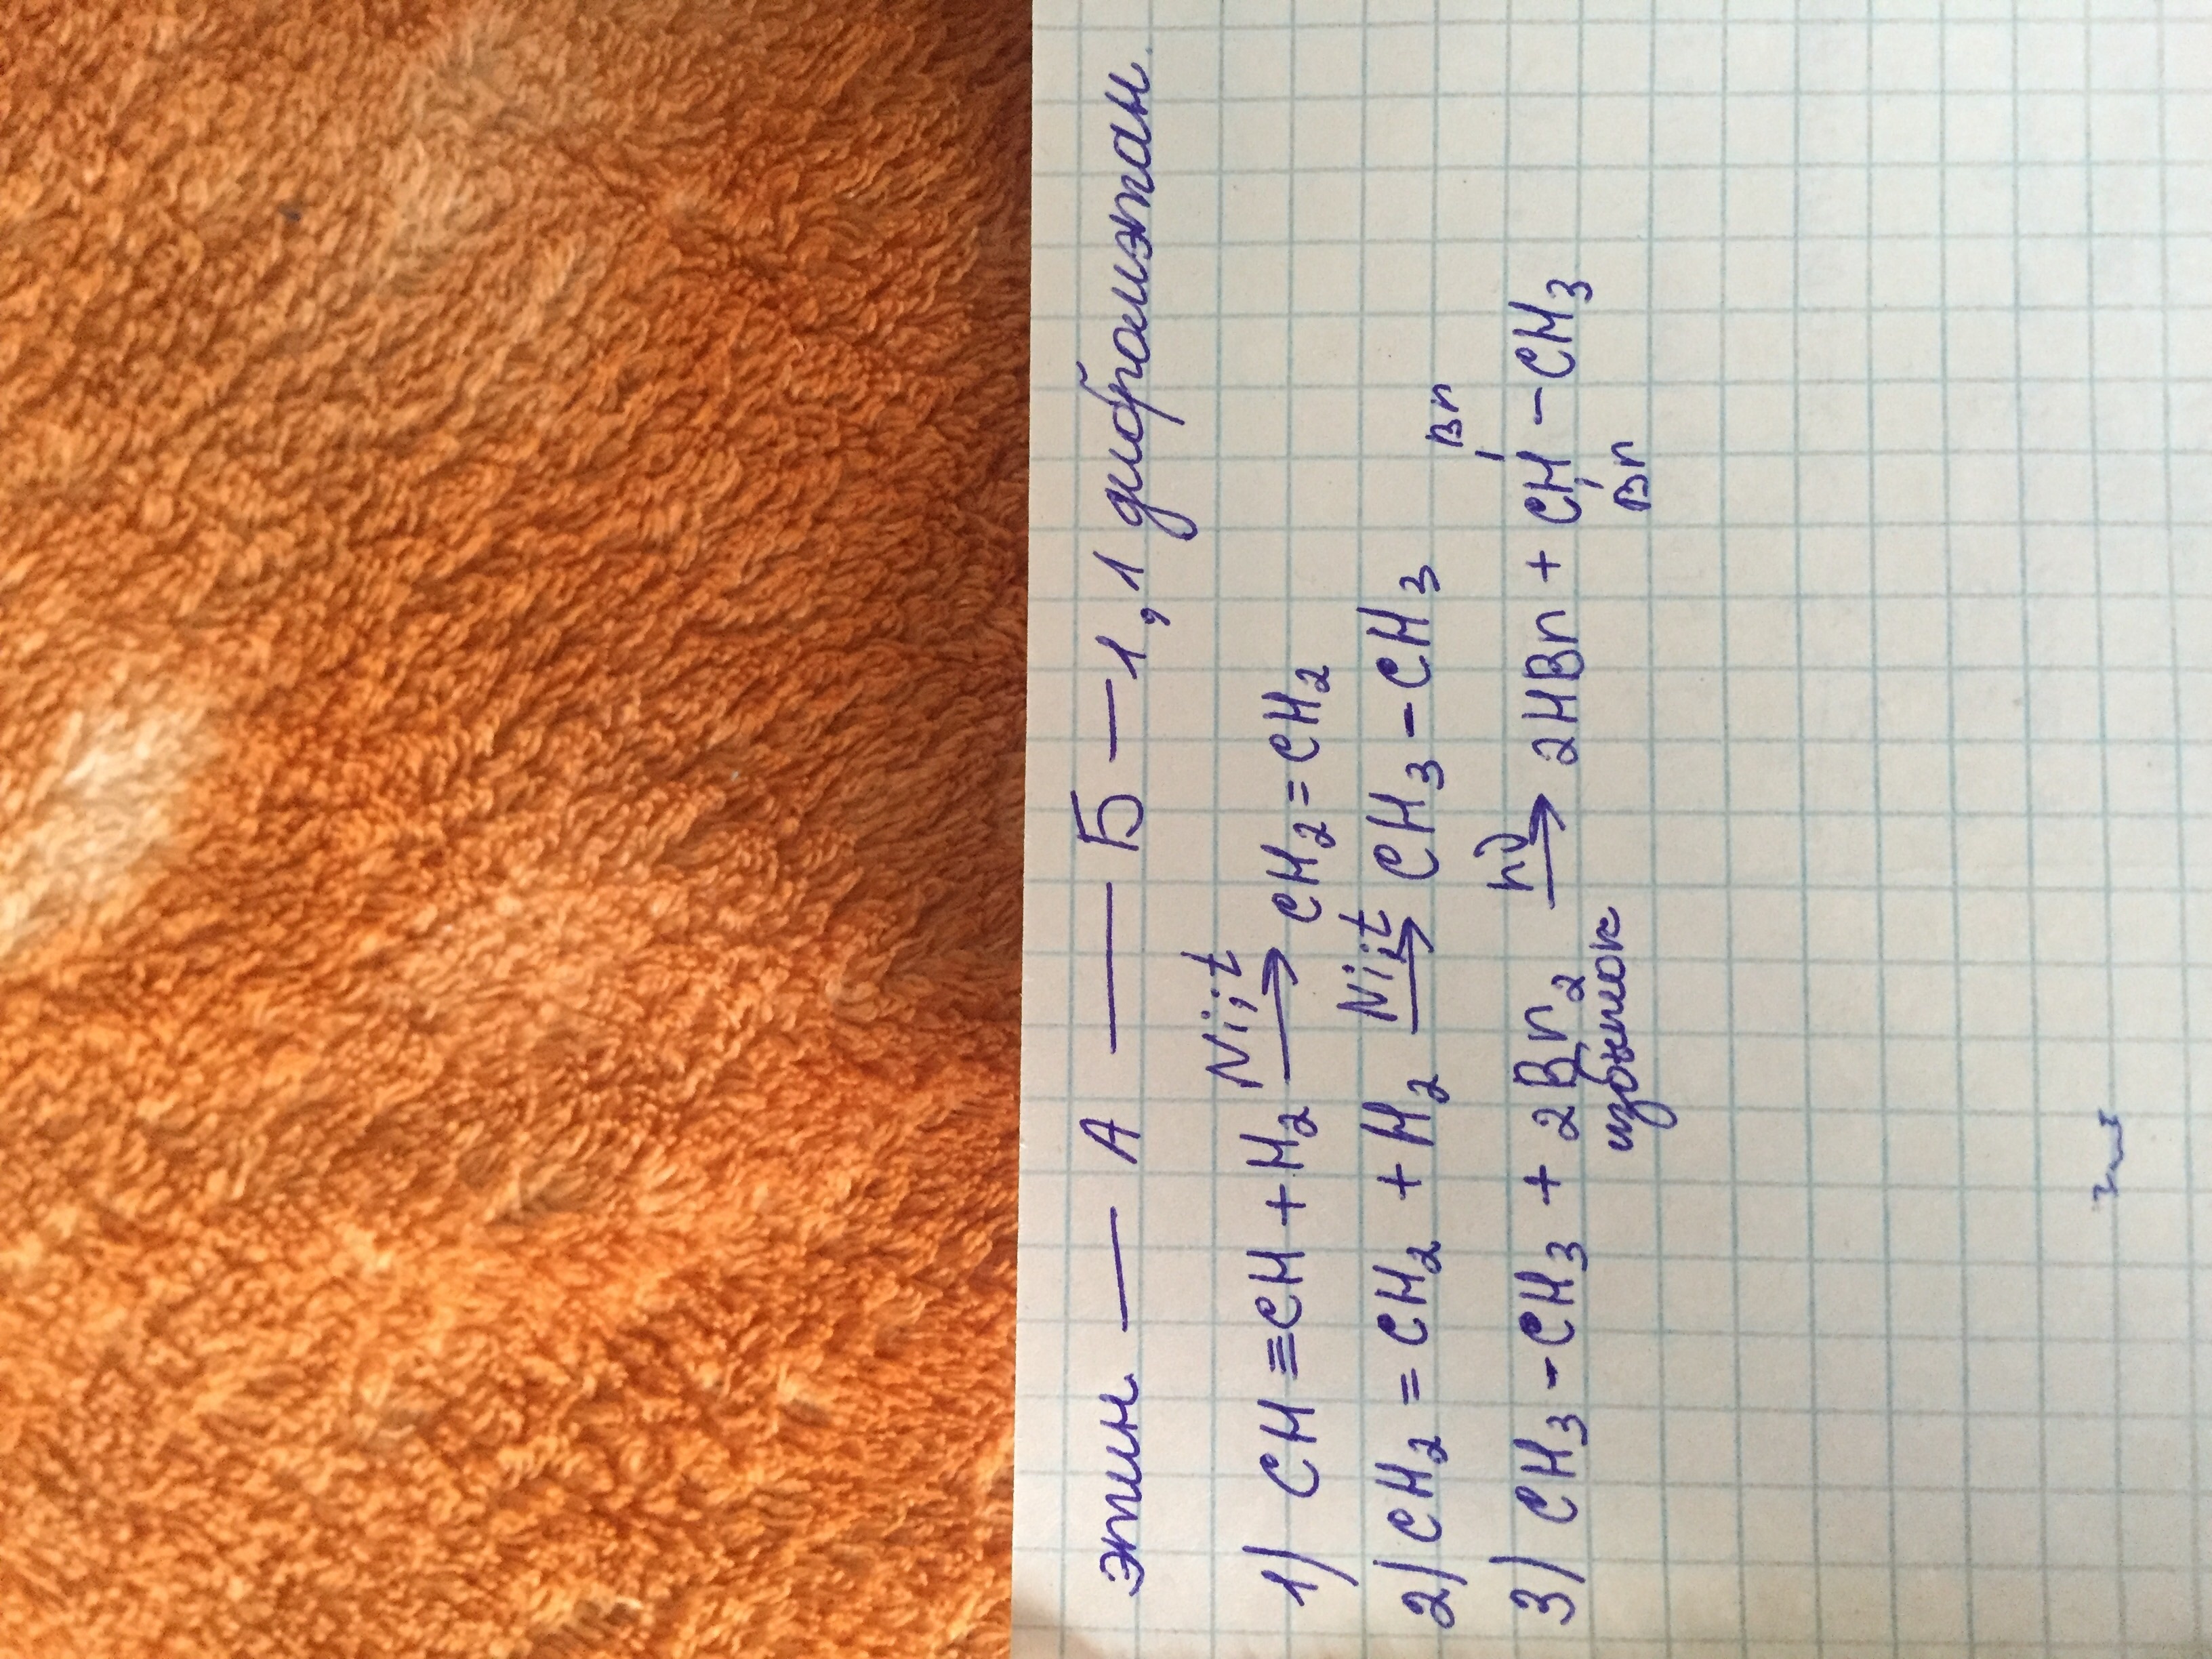 этин — А — Б — 1,1 дибромэтан.
1) CH≡CH + H₂ —Ni; t→ CH₂=CH₂
2) CH₂=CH₂ + H₂ —Ni; t→ CH₃-CH₃
Br
3) CH₃-CH₃ + 2Br₂ —hν→ 2HBr + CH-CH₃
избыток Br